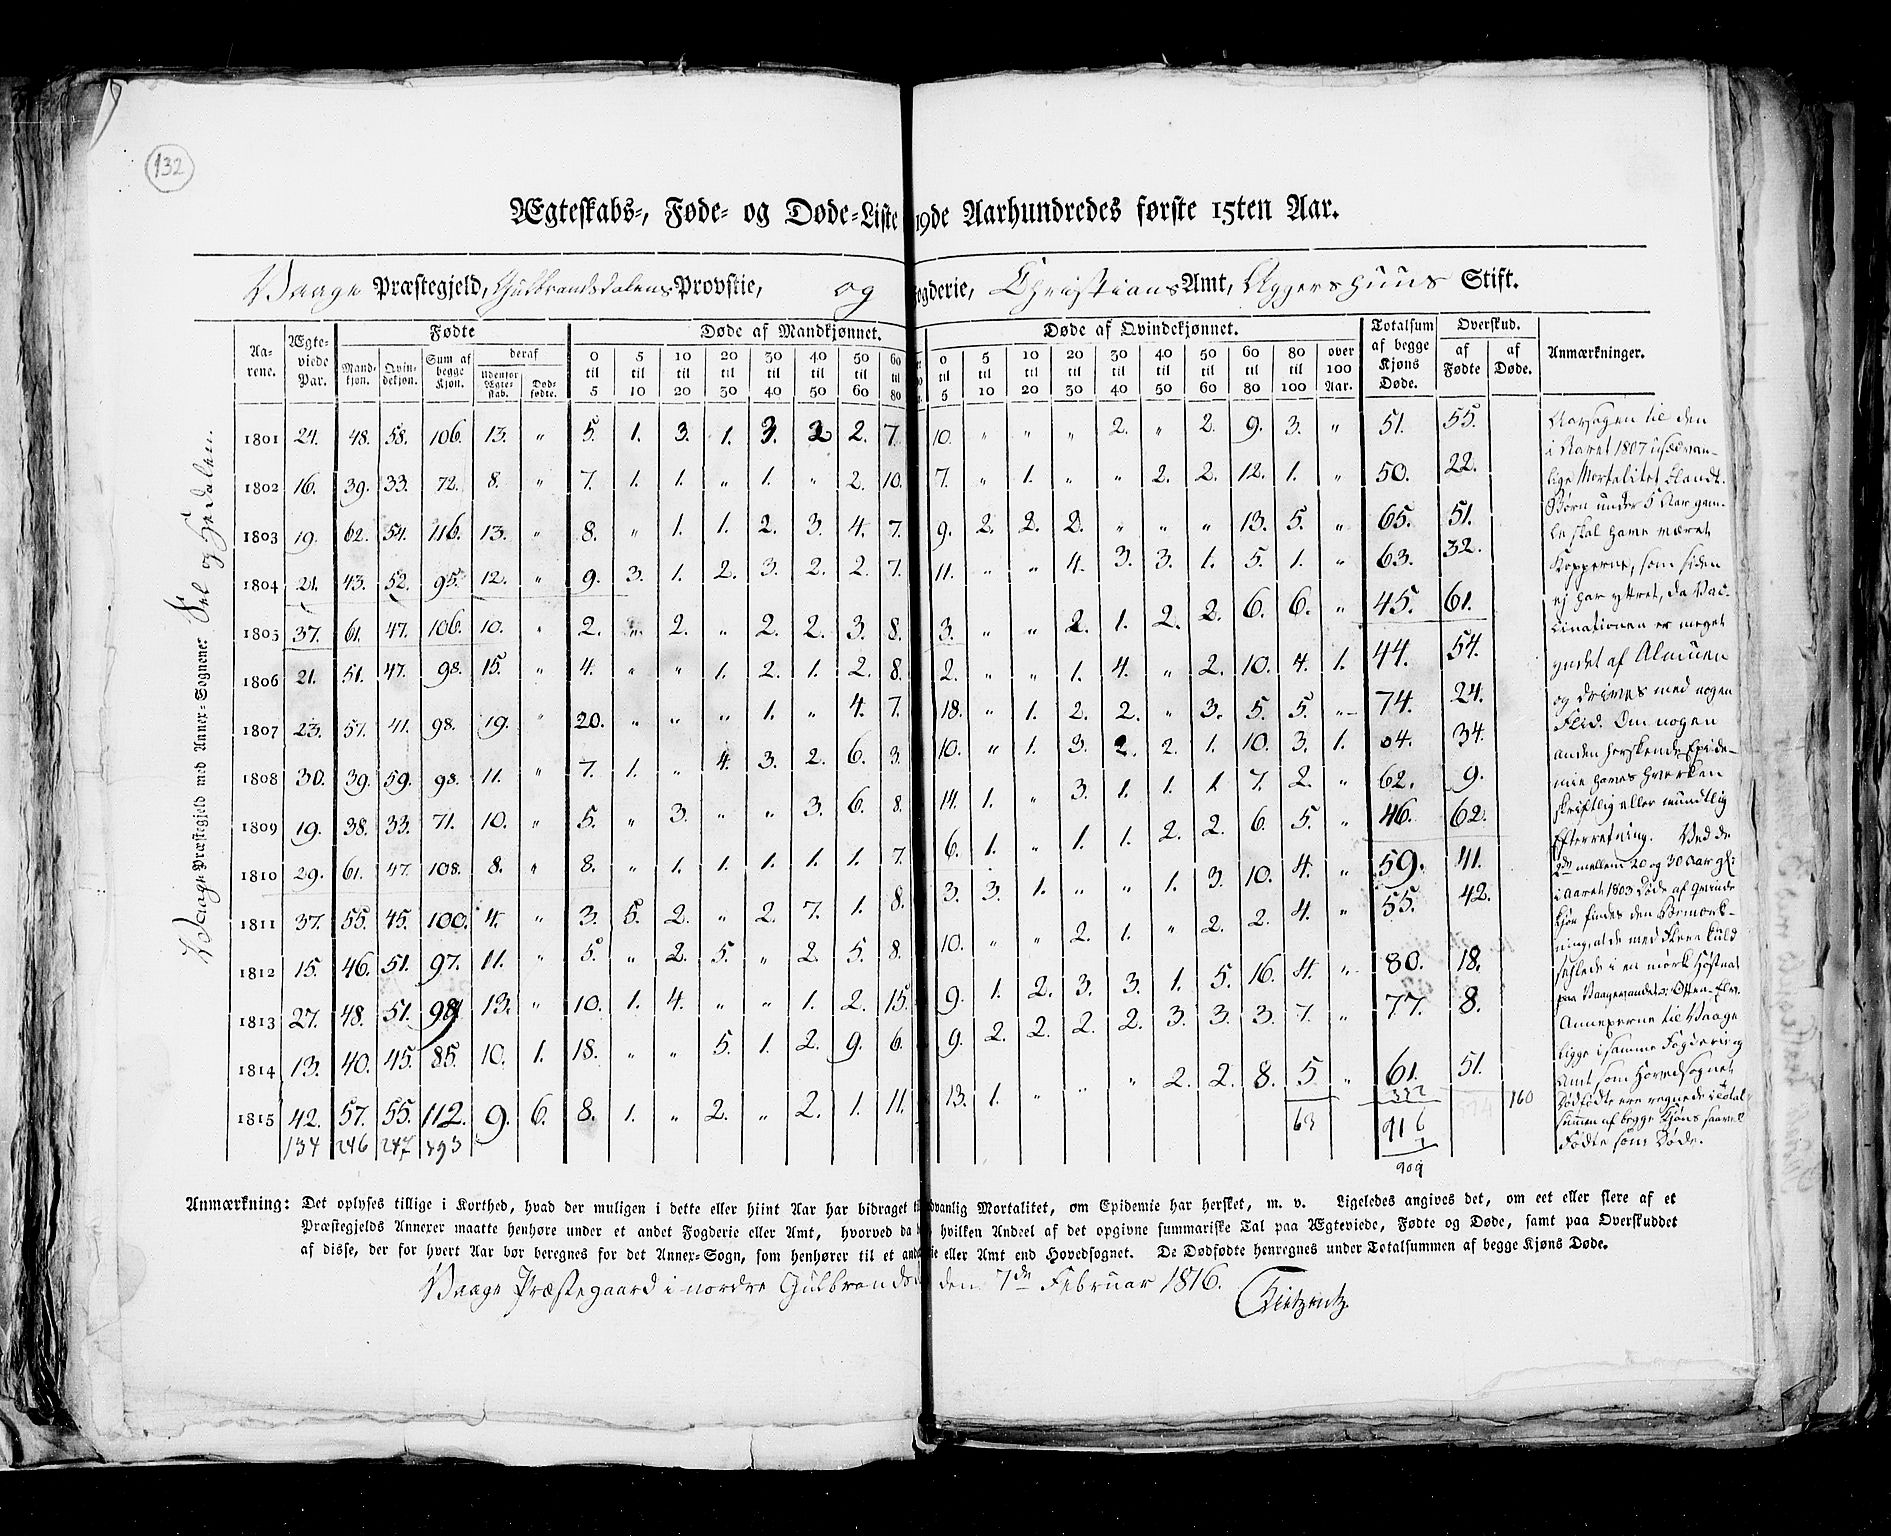 132
Ægteskabs-, Føde- og Døde-Liste 19de Aarhundredes første 15ten Aar.
Vaage Præstegjeld, Gulbrandsdalens Provstie, og Fogderie, Christians Amt, Aggershuus Stift.
Vaage Præstegjeld med Annex-Sognene: Sel og Hedalen.
Aarene. Ægteviede Par. Fødte Døde af Mandkjønnet. Døde af Qvindekjønnet. Totalsum af begge Kjøns Døde. Overskud. Anmærkninger.
Mandkjøn. Qvindekjøn. Sum af begge Kjøn. deraf udenfor Ægteskab. Dødfødte. 0 til 5 5 til 10 10 til 20 20 til 30 30 til 40 40 til 50 50 til 60 60 til 80 0 til 5 5 til 10 10 til 20 20 til 30 30 til 40 40 til 50 50 til 60 60 til 80 80 til 100 over 100 Aar. af Fødte af Døde.
1801 24. 48. 58. 106. 13. " 5. 1. 3. 1. 3. 2. 7. 10. " " " 2. " 2. 9. 3. " 51. 55.
1802 16. 39. 33. 72. 8. " 7. 1. 1. " 1. " 2. 10. 7. " 1. " " 2. 2. 12. 1. " 50. 22.
1803 19. 62. 54. 116. 13. " 8. " 1. 1. 2. 3. 4. 7. 9. 2. 2. 2. " " " 13. 5. " 65. 51.
1804 21. 43. 52. 95. 12. " 9. 3. 1. 2. 3. 2. 2. 7. 11. " " 4. 3. 3. 1. 5. 1. " 63. 32.
1805 37. 61. 47. 106. 10. " 2. " 2. " 2. 2. 3. 8. 3. " " 2. 1. 2. 2. 6. 6. " 45. 61.
1806 21. 51. 47. 98. 15. " 4. " " 1. 2. 1. 2. 8. 2. " " 1. 4. " 2. 10. 4. 1. 44. 54.
1807 23. 57. 41. 98. 19. " 20. " " " 1. " 4. 7. 18. " 1. 2. 2. " 3. 5. 5. " 74. 24.
1808 30. 39. 59. 98. 11. " 7. 1. " 4. 3. 2. 6. 3. 10. " 1. 3. 2. 2. 1. 10. 3. 1. 64. 34.
1809 19. 38. 33. 71. 10. " 5. " 3. " " 3. 6. 8. 14. 1. " 3. 1. 1. 1. 7. 2. " 62. 9.
1810 29. 61. 47. 108. 8. " 8. " 1. 1. 1. 1. 1. 7. 6. 1. " 1. 1. 2. 2. 6. 5. " 46. 62.
1811 37. 55. 45. 100. 4. " 3. 5. 2. " 2. 7. 1. 8. 3. 3. 1. " " 1. 3. 10. 4. " 59. 41.
1812 15. 46. 51. 97. 11. " 5. " 2. 5. " 2. 5. 8. 10. " " 2. 1. " 2. 2. 4. " 55. 42.
1813 27. 48. 51. 13. " 10. 1. 4. " " 1. 2. 15. 9. 1. 2. 3. 3. 1. 5. 16. 4. " 80. 18.
1814 13. 40. 45. 85. 10. 1. 18. " " 5. 1. 2. 9. 6. 9. 2. 2. 2. 2. 3. 3. 3. 7. " 77. 8.
1815 42. 57. 55. 112. 9. 6. 8. 1. " 2. " 2. 1. 11. 13. 1. " " " 2. 2. 8. 5. " 61. 51.
134 246 247 493 63 332 160
916
7
909
Aarsagen til den
i Aaret 1807 usædvan-
lige Mortalitet blandt
Børn under 5 Aar gam-
le skal have været
Kopperne, som siden
ej har yttret, da Vac-
cinationen er meget
yndet af Almuen
og drives med nogen
Flid. Om nogen
anden herskende Epide-
mie haves hverken
skriftlig eller mundtlig
Efterretning. Ved de
2de mellem 20 og 30 Aar gl:
i Aaret 1803 døde af Qvinde
kjøn findes den Bemærk-
ning, at de med flere
i en mørk Høstnat
paa Vaagevandets Otten-Elv.
Annexerne til Vaage
ligge i samme Fogderie og
Amt som Hovedsognet
Dødfødte ere regnede i Total-
summen af begge Kjøns saavel
Fødte som Døde.
Anmærkning: Det oplyses tillige i Korthed, hvad der muligen i dette eller hiint Aar har bidraget til dvanlig Mortalitet, om Epidemie har hersket, m. v. Ligeledes angives det, om eet eller flere af et
Præstegjelds Annexer maatte henhøre under et andet Fogderie eller Amt, hvorved da hvilken Andeel af det opgivne summariske Tal paa Ægteviede, Fødte og Døde, samt paa Overskuddet
af disse, der for hvert Aar bør beregnes for det Annex-Sogn, som henhører til et and ie eller Amt end Hovedsognet. De Dødfødte henregnes under Totalsummen af begge Kjøns Døde.
Vaage Præstegaard i nordre Gulbrandsd den 7de Februar 1816.